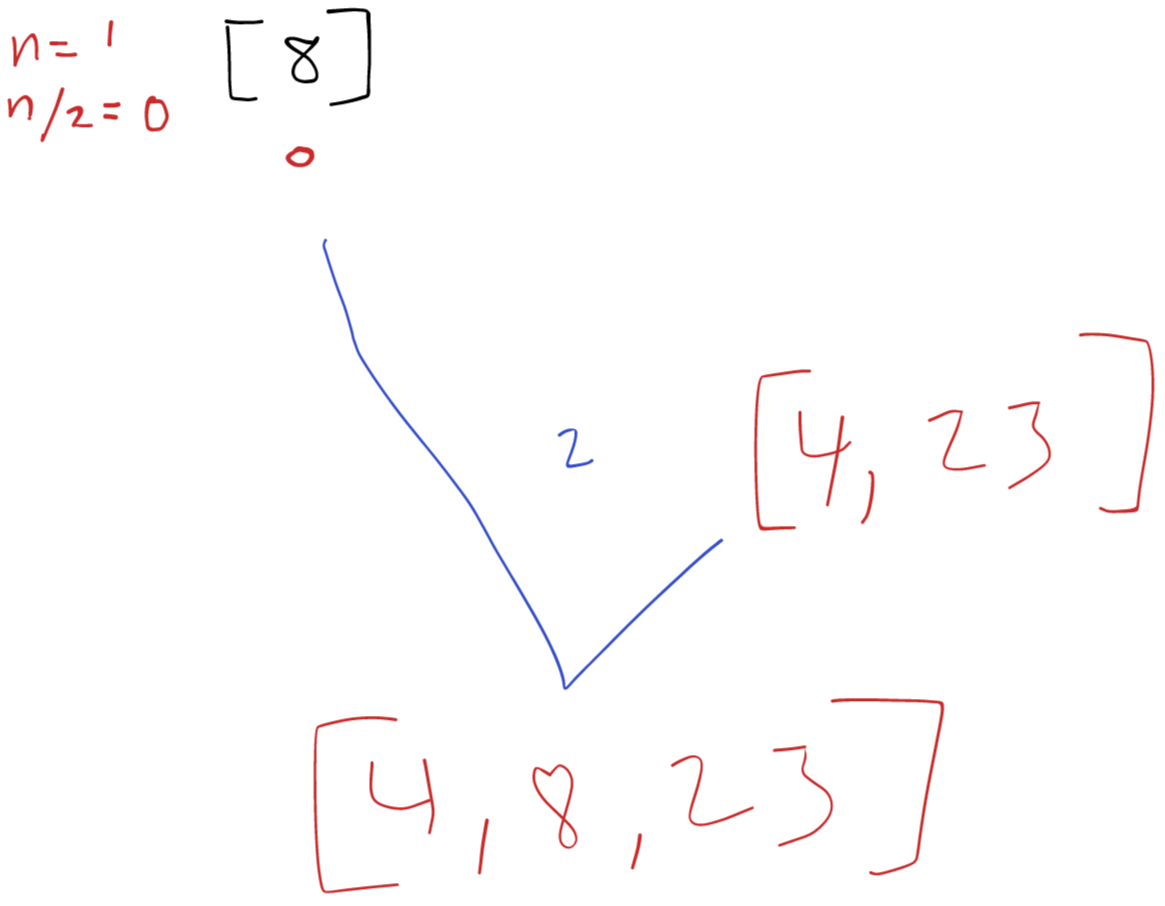 n = 1 [8]
n/2 = 0
0
2
[4, 23]
[4, 8, 23]